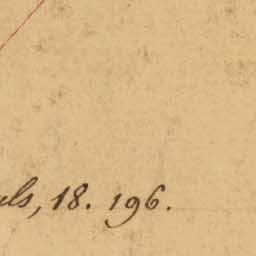 els, 18. 196.